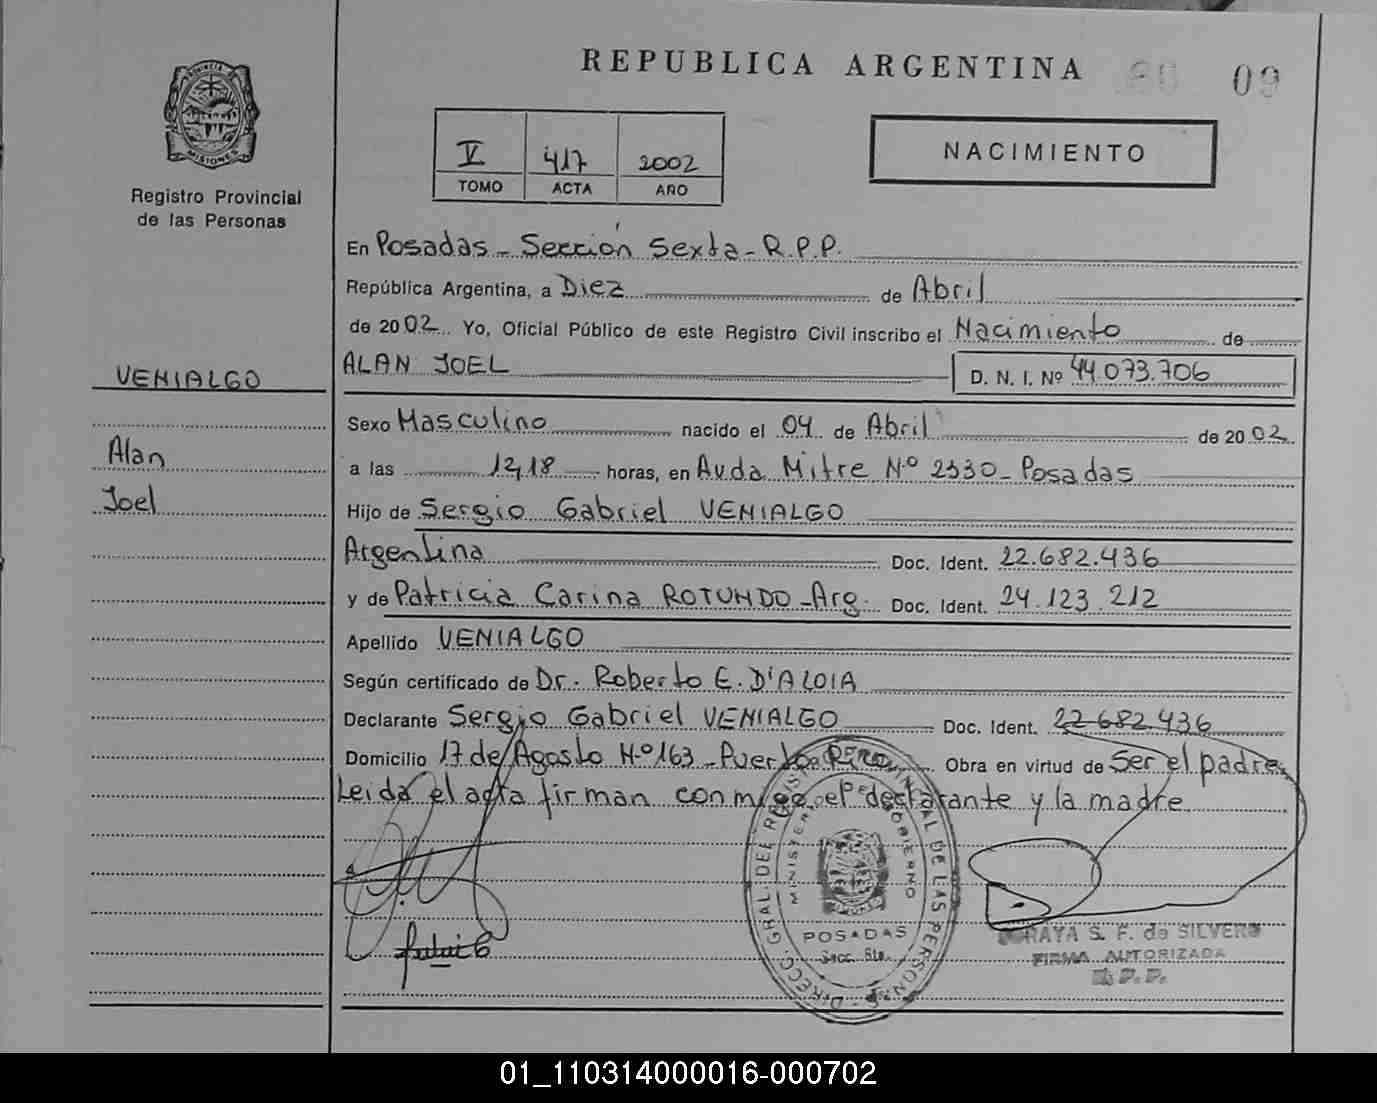 REPUBLICA ARGENTINA
09
PROVINCIA DE
MISIONES
Registro Provincial
de las Personas
V 417 2002
TOMO ACTA AÑO
NACIMIENTO
En Posadas - Sección Sexta - R.P.P.
República Argentina, a Diez de Abril
de 2002. Yo, Oficial Público de este Registro Civil inscribo el Nacimiento de
ALAN JOEL D. N. I. Nº 44.073.706
VENIALGO
Alan
Joel
Sexo Masculino nacido el 04 de Abril de 2002
a las 12,18 horas, en Avda Mitre Nº 2330 - Posadas
Hijo de Sergio Gabriel VENIALGO
Argentina Doc. Ident. 22.682.436
y de Patricia Carina ROTUNDO - Arg. Doc. Ident. 24.123.212
Apellido VENIALGO
Según certificado de Dr. Roberto E. D'ALOIA
Declarante Sergio Gabriel VENIALGO Doc. Ident. 22.682.436
Domicilio 17 de Agosto Nº 163 - Puerto Rico Obra en virtud de Ser el padre
Leida el acta firman conmigo el declarante y la madre
DIRECC. GRAL. DEL REGISTRO PROVINCIAL DE LAS PERSONAS
MINISTERIO DE GOBIERNO
POSADAS
Secc. 6ta.
SORAYA S. F. de SILVERO
FIRMA AUTORIZADA
R. P. P.
01_110314000016-000702